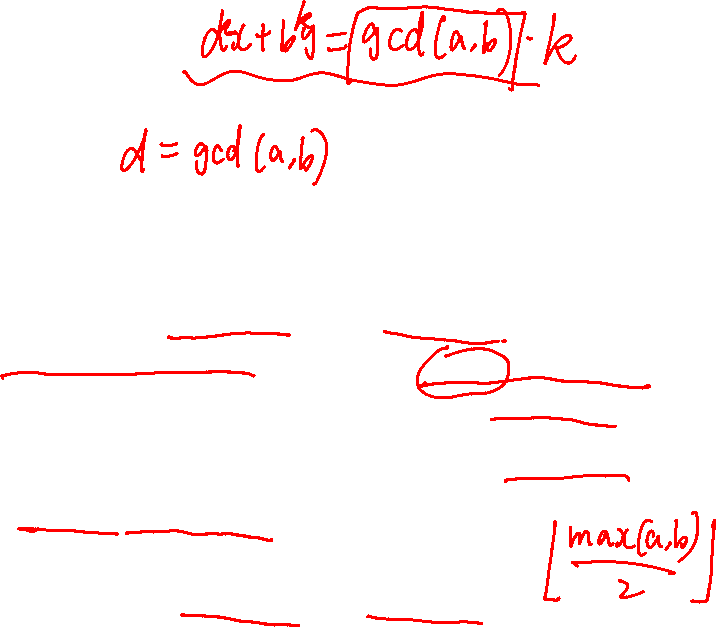 akx + bky = gcd(a,b) · k
d = gcd(a,b)
⌊max(a,b)/2⌋